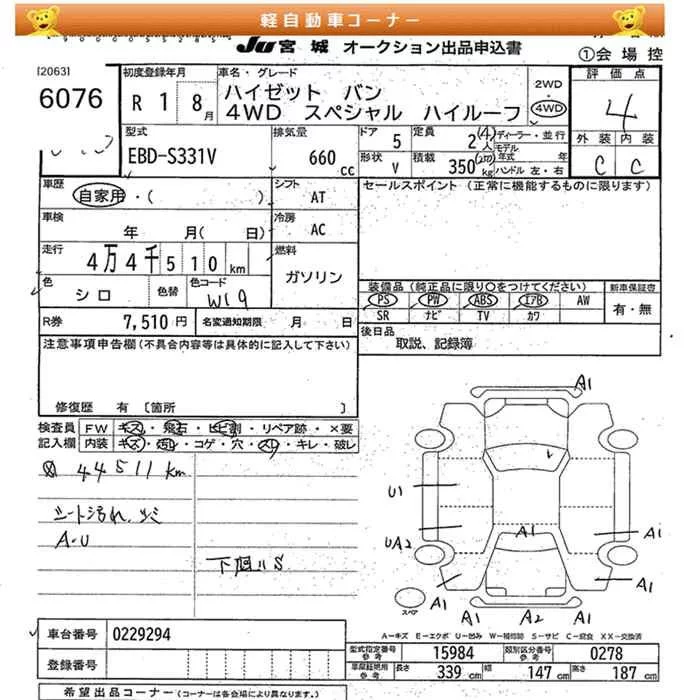 軽自動車コーナー
JU宮城 オークション出品申込書
①会場控
[2063]
6076
初度登録年月
R 1 8月
車名・グレード
ハイゼット バン
4WD スペシャル ハイルーフ
2WD
4WD
評価点
4
外装 内装
C C
型式
EBD-S331V
排気量
660 cc
ドア 5
定員 2(4)人
ディーラー・並行
モデル年式 年
形状 V
積載 350 kg
ハンドル 左・右
車歴
自家用・( )
シフト
AT
セールスポイント (正常に機能するものに限ります)
車検
年 月( 日)
冷房
AC
走行
4万4千510km
燃料
ガソリン
色
シロ
色替
色コード
W19
装備品 (純正品に限り○をつけてください)
PS PW ABS エアB AW
SR ナビ TV カワ
新車保証書
有・無
R券 7,510円
名変通知期限 月 日
後日品
取説、記録簿
注意事項申告欄(不具合内容等は具体的に記入して下さい)
修復歴 有 [箇所 ]
検査員記入欄
FW キズ・飛石・ヒビ割・リペア跡・×要
内装 キズ・汚レ・コゲ・穴・スレ・キレ・破レ
44511km
シート汚れ
A・U
下廻りS
A1
U1
UA2
A1
A1
A1
A1
A1
A2
A1
スペア
A-キズ E-エクボ U-凹み W-補修跡 S-サビ C-腐食 XX-交換済
車台番号 0229294
登録番号
型式指定番号参考 15984
類別区分番号参考 0278
長さ 339cm
幅 147cm
高さ 187cm
希望出品コーナー(コーナーは各会場により異なります。)